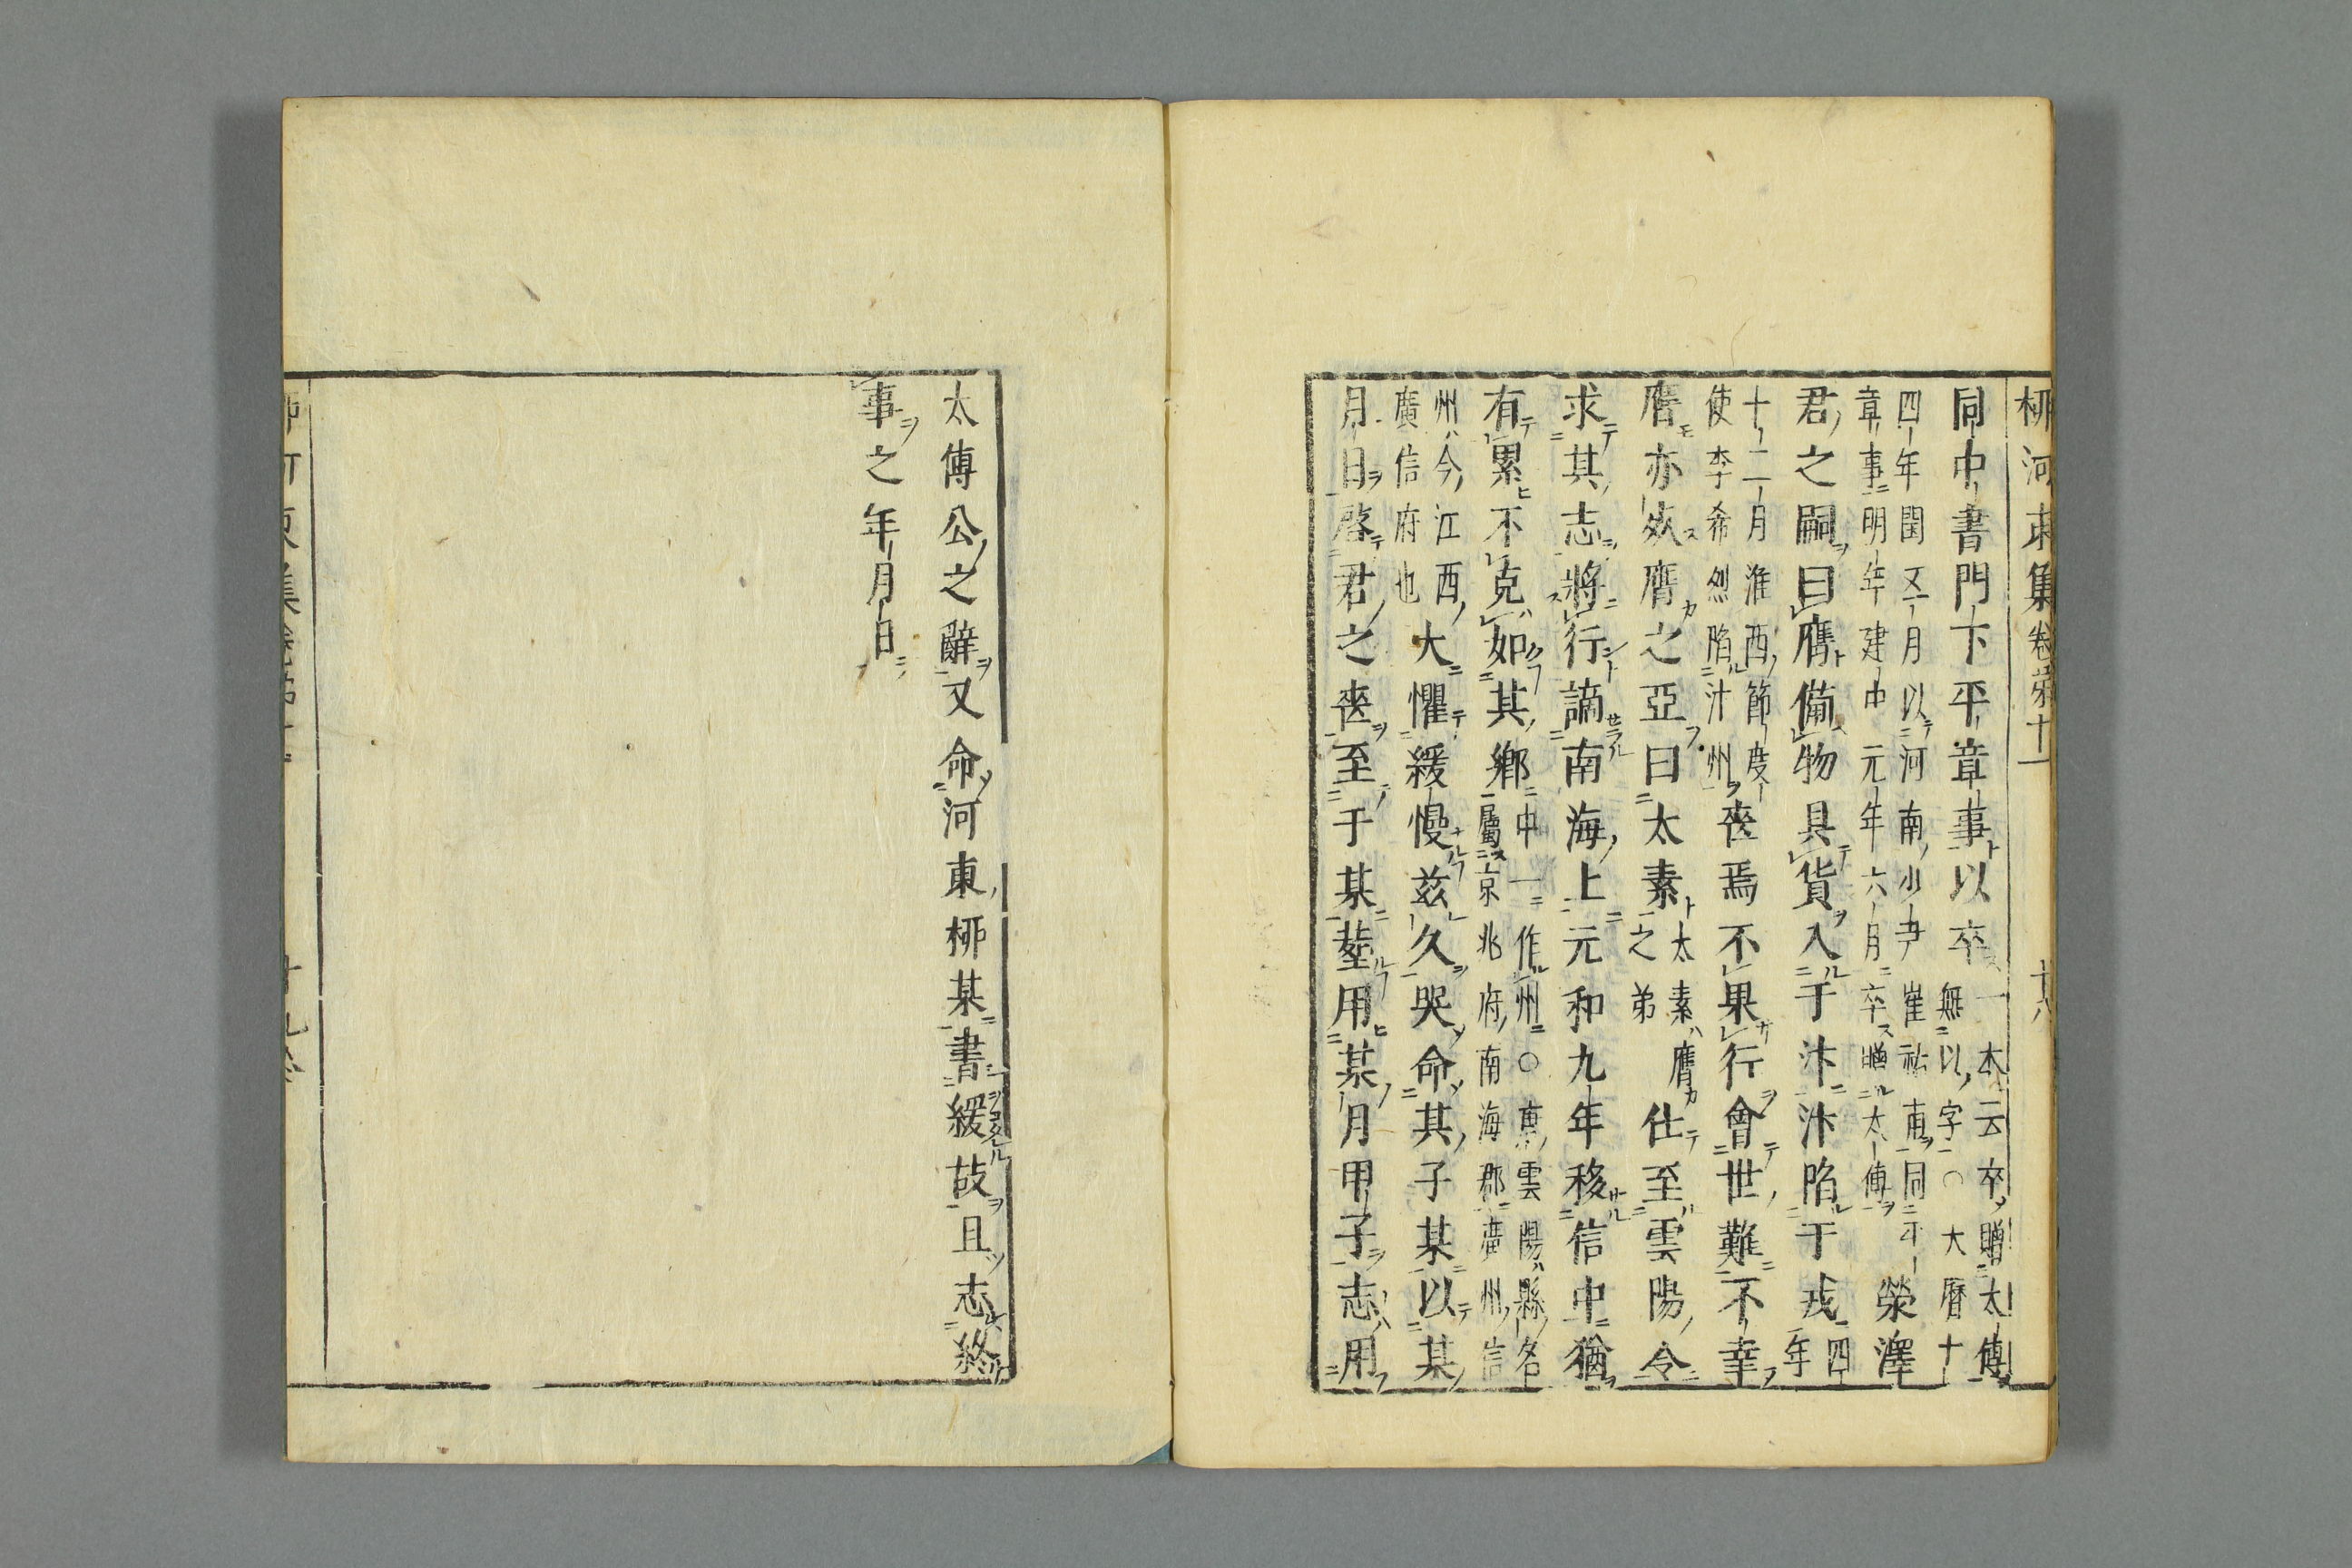 柳河東集卷第十一　十八
同中書門下平章事以卒
一本云卒贈太傅
無以字○大曆十
四年閏五月以河南少尹崔祐甫同平
章事明年建中元年六月卒贈太傅
滎澤
君之嗣曰膺備物具貨入于汴汴陷于戎
四
年
十二月淮西節度
使李希烈陷汴州
喪焉不果行會世難不幸
膺亦歿膺之亞曰太素
太素膺
之弟
仕至雲陽令
求其志將行謫南海上元和九年移信中猶
有累不克如其鄉
中一作州○雲陽縣名
屬京兆府南海郡廣州信
州今江西
廣信府也
大懼緩慢茲久哭命其子某以某
月日啓君之喪至于某塟用某月甲子志用
太傅公之辭又命河東柳某書緩故且志終
事之年月日